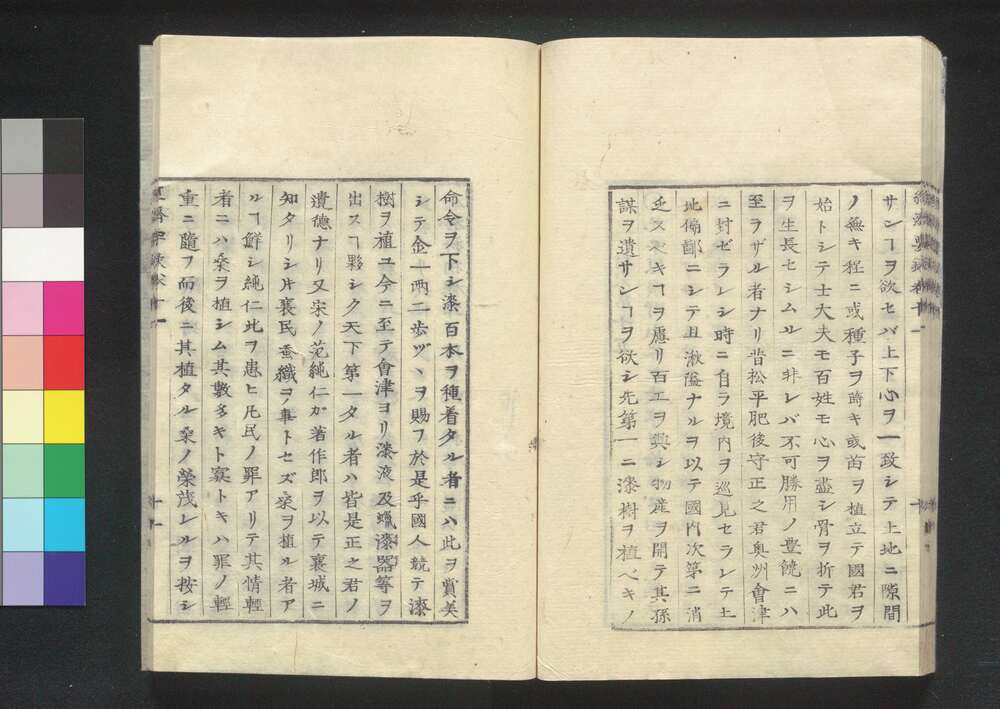 サンヿヲ欲セバ上下心ヲ一致シテ土地ニ隙間
ノ無キ程ニ或種子ヲ蒔キ或苗ヲ植立テ國君ヲ
始トシテ士大夫モ百姓モ心ヲ盡シ骨ヲ折テ此
ヲ生長セシムルニ非レバ不可勝用ノ豊饒ニハ
至ラザル者ナリ昔松平肥後守正之君奥州會津
ニ封ゼラレシ時ニ自ラ境内ヲ巡見セラレシテ土
地偏鄙ニシテ且湫隘ナルヲ以テ國内次第ニ消
乏スベキヿヲ慮リ百工ヲ興シ物産ヲ開テ其孫
謀ヲ遺サンヿヲ欲シ先第一ニ漆樹ヲ植ベキノ
命令ヲ下シ漆百本ヲ種着タル者ニハ此ヲ賞美
シテ金一兩二歩ヅヽヲ賜フ於是乎國人競テ漆
樹ヲ植ユ今ニ至テ會津ヨリ漆液及蠟漆器等ヲ
出スヿ夥シク天下第一タル者ハ皆是正之君ノ
遺德ナリ又宋ノ范純仁ガ著作郎ヲ以テ襄城ニ
知タリシ片襄民蚕織ヲ事トセズ桑ヲ植ル者ア
ルヿ鮮シ純仁此ヲ患ヒ凡民ノ罪アリテ其情輕
者ニハ桑ヲ植シム其數多キト寡トキハ罪ノ輕
重ニ隨フ而後ニ其植タル桑ノ榮茂レルヲ按シ